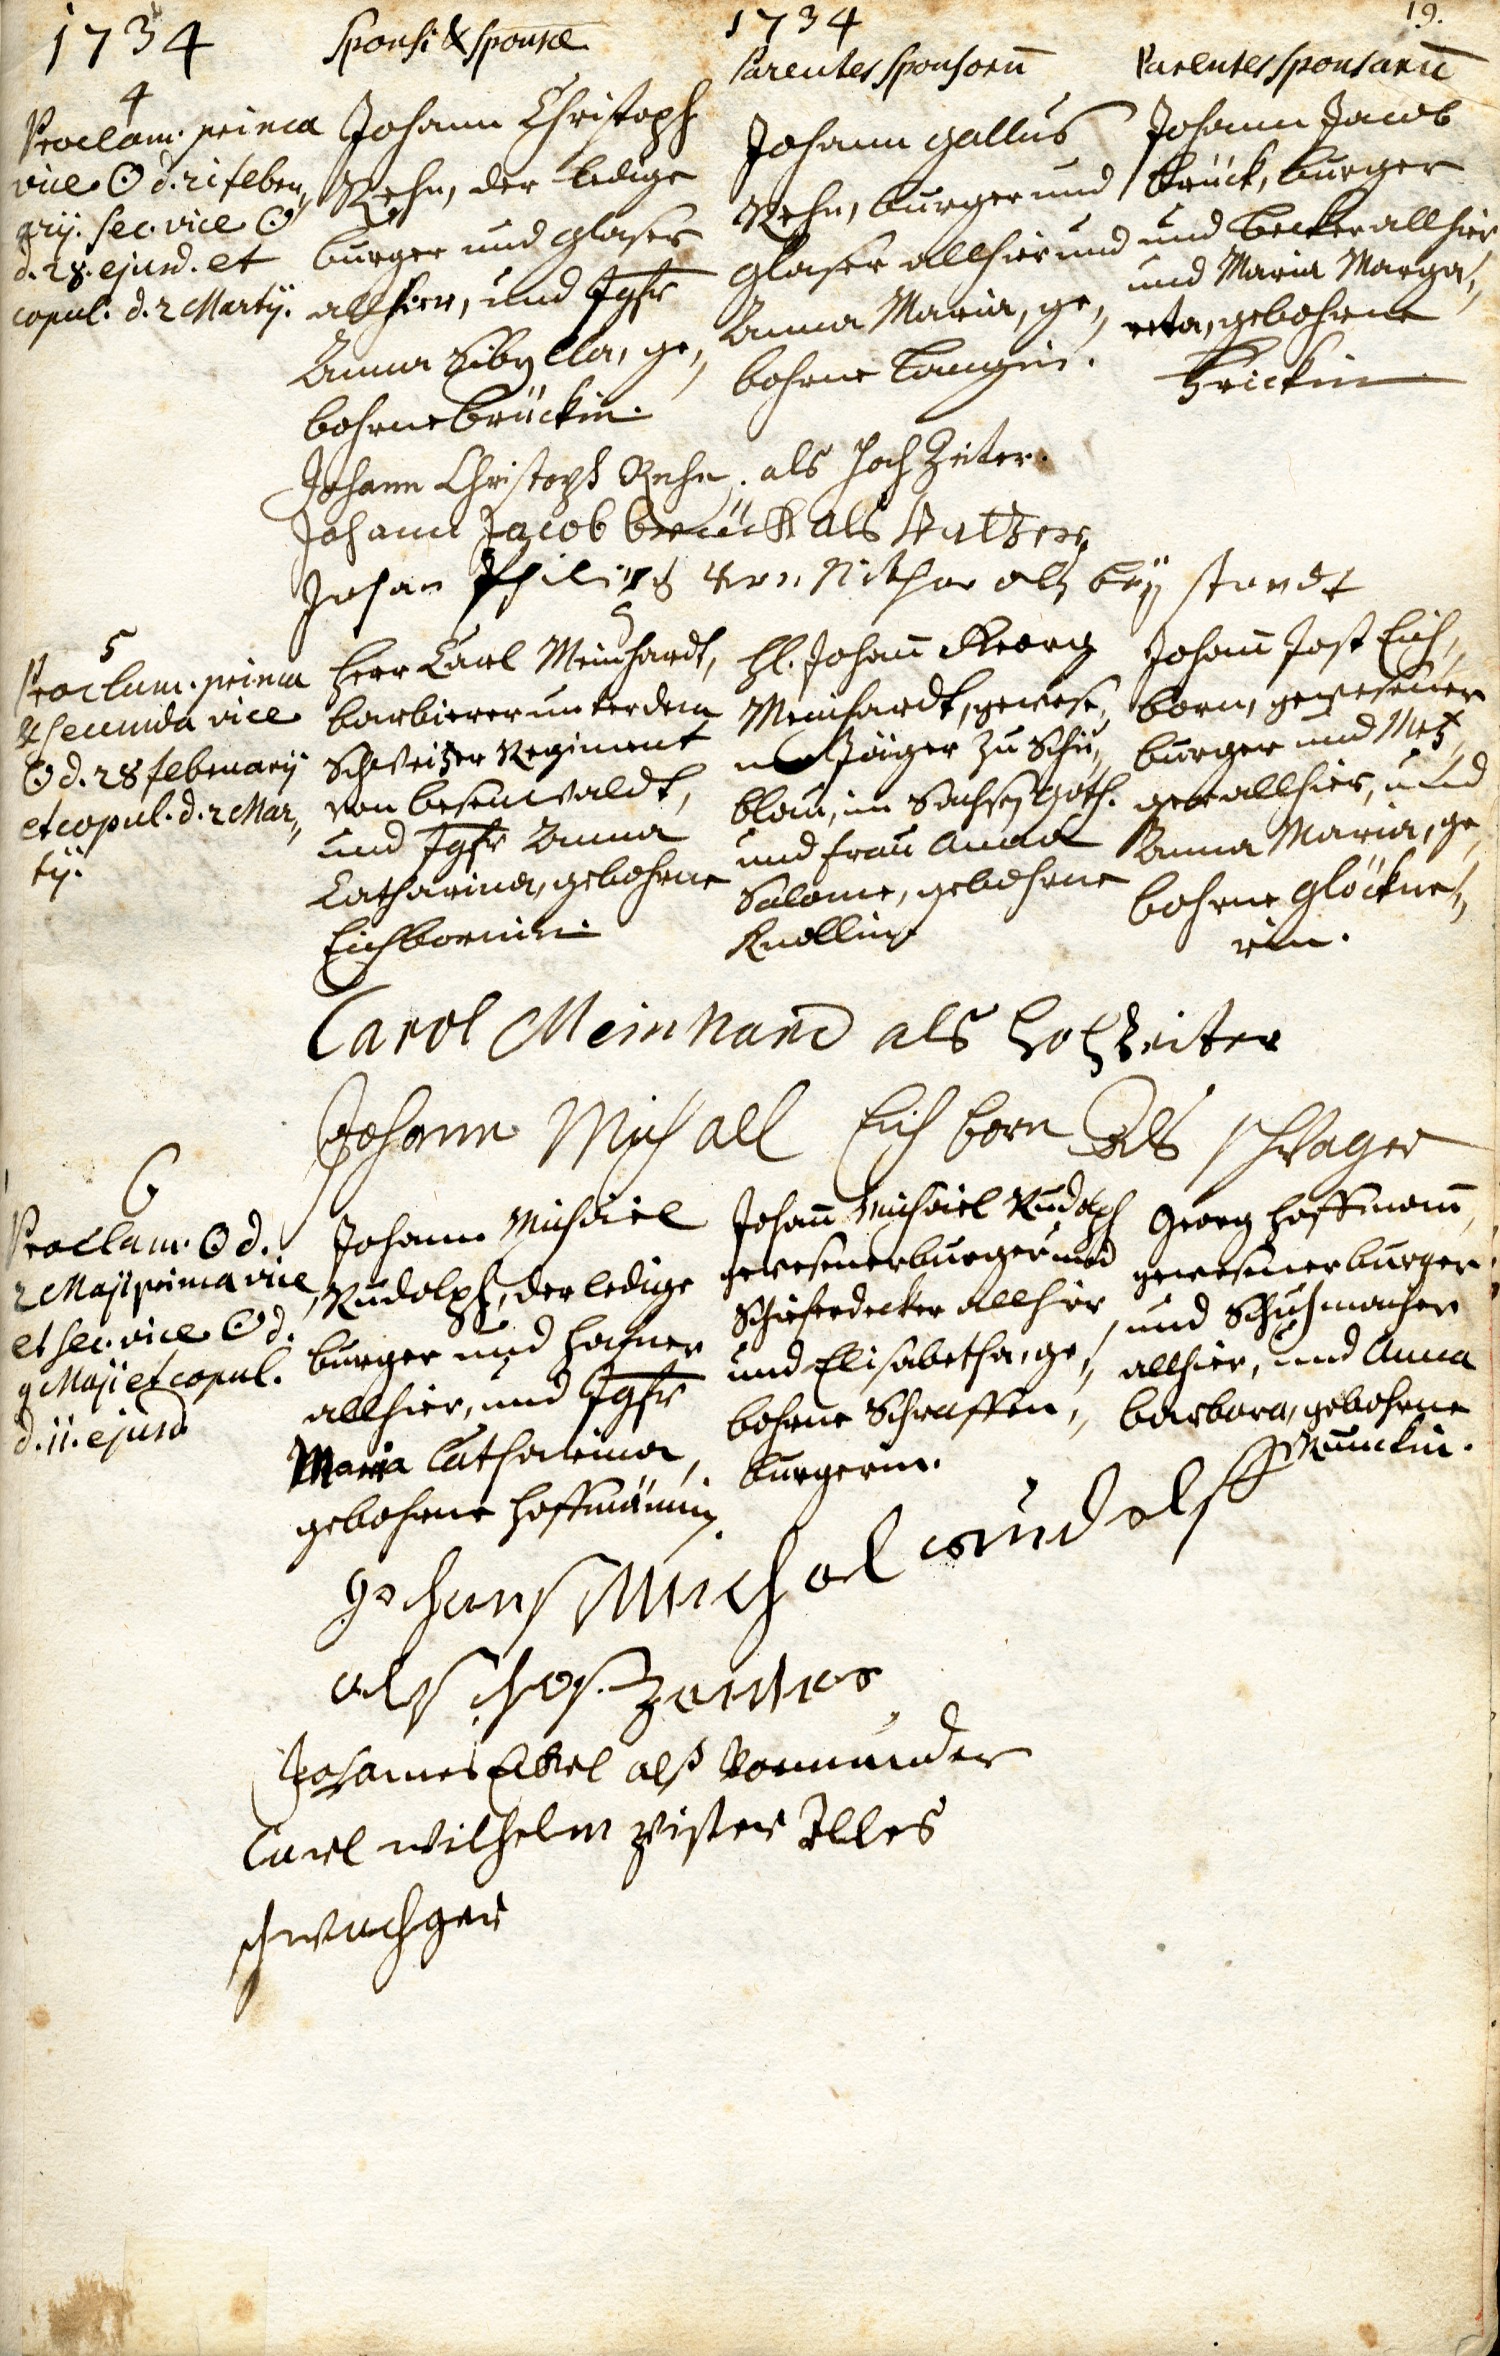 1734
Sponsi & Sponsæ
1734
Parentes Sponsorū
Parentes Sponsarū
19.
4
Proclam. prima
vice ☉ d. 21 febru,,
arij. sec. vice ☉
d. 28. ejusd. et
copul. d. 2 Martij.
Johann Christoph
Rehn, der ledige
burger und glaser
allhier, und Jgfr
Anna Sibylla, ge,,
bohrne brückin.
Johann gallus
Rehn, burger und
glaser allhier und
Anna Maria, ge,,
bohrne Langin.
Johann Jacob
brück, burger
und becker allhier
und Maria Marga,,
reta, gebohrne
Frickin
Johann Christoph Rehn. als Hoch Zeiter.
Johann Jacob brück als Vatter
Johan Philips als bey standt
5
Proclam. prima
& secunda vice
☉ d. 28 februarij
et copul. d. 2 Mar,,
tij.
Herr Carl Meinhardt,
barbierer unter dem
Schweitzer Regiment
von besenvaldt,
und Jgfr Anna
Catharina, gebohrne
Eichbornin.
H. Johann Georg
Meinhardt, gewese,,
ner Jäger zu Schü,,
blau, im Sachs. goth.
und frau Anna
Salome, gebohrne
Knollin
Johann Jost Eich,,
born, gewesener
burger und Metz,,
ger allhier, und
Anna Maria, ge,,
bohrne Glöckne,,
rin.
Carol Meinhard als Hochzeiter
Johann Michall Eichborn als schwager
6
Proclam. ☉ d.
2 Maji prima vice
et sec. vice ☉ d.
9 Maji et copul.
d. 11. ejusd
Johann Michäel
Rudolph, der ledige
burger und hafner
allhier, und Jgfr
Maria Catharina,
gebohrne hoffmännin.
Johann Michäel Rudolph
gewesener burger und
Schieferdecker allhier
und Elisabetha, ge,,
bohrne Schraffen,,
burgerin.
Georg hoffmann,
gewesener burger
und Schuhmacher
allhier, und Anna
barbara, gebohrne
Munckin.
Johans Michael rudolff
als hochzeiter
Johannes Eckel alß Vormunder
Carl Wilhelm Pfister Alles
schwachger